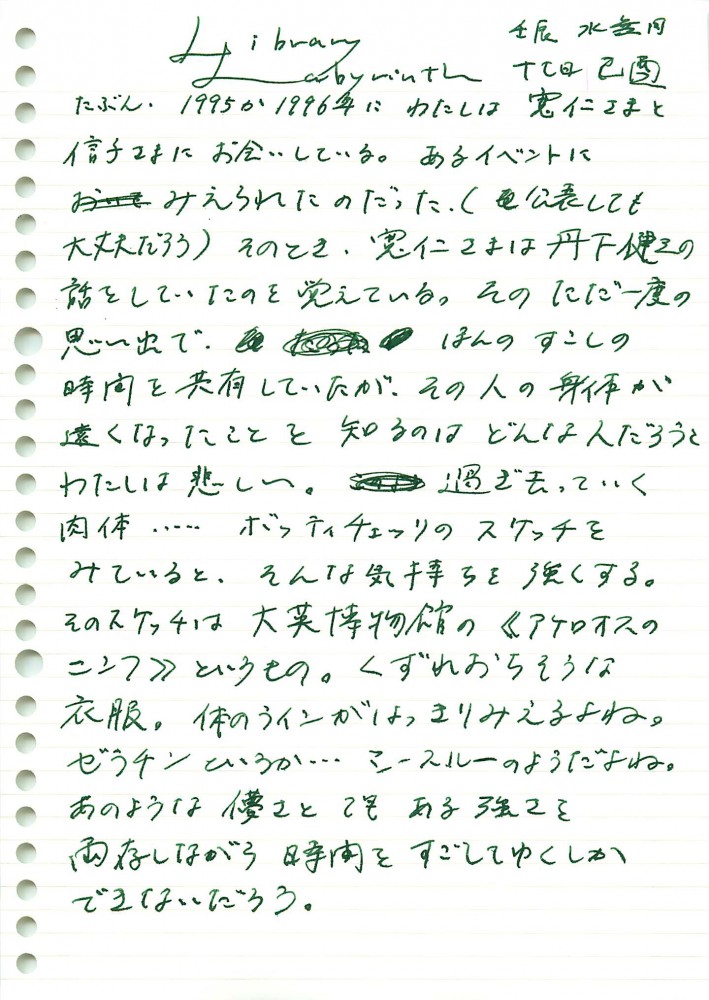 Library 壬辰 水無月
Labyrinth 十七日 己酉
たぶん、1995か1996年に わたしは 寛仁さまと
信子さまに お会いしている。あるイベントに
みえられたのだった。(公表しても
大丈夫だろう) そのとき、寛仁さまは 丹下健三の
話をしていたのを覚えている。その ただ一度の
思い出で、ほんの すこしの
時間を共有していたが、その人の身体が
遠くなったことを 知るのは どんな人だろうと
わたしは 悲しい。過ぎ去っていく
肉体 ‥‥‥ ボッティチェッリの スケッチを
みていると、そんな気持ちを 強くする。
そのスケッチは 大英博物館の 《アケロオスの
ニンフ》 というもの。くずれおちそうな
衣服。体のラインがはっきりみえるよね。
ゼラチン というか… シースルーのようだよね。
あのような 儚さと ても ある強さを
両存しながら 時間を すごしてゆくしか
できないだろう。